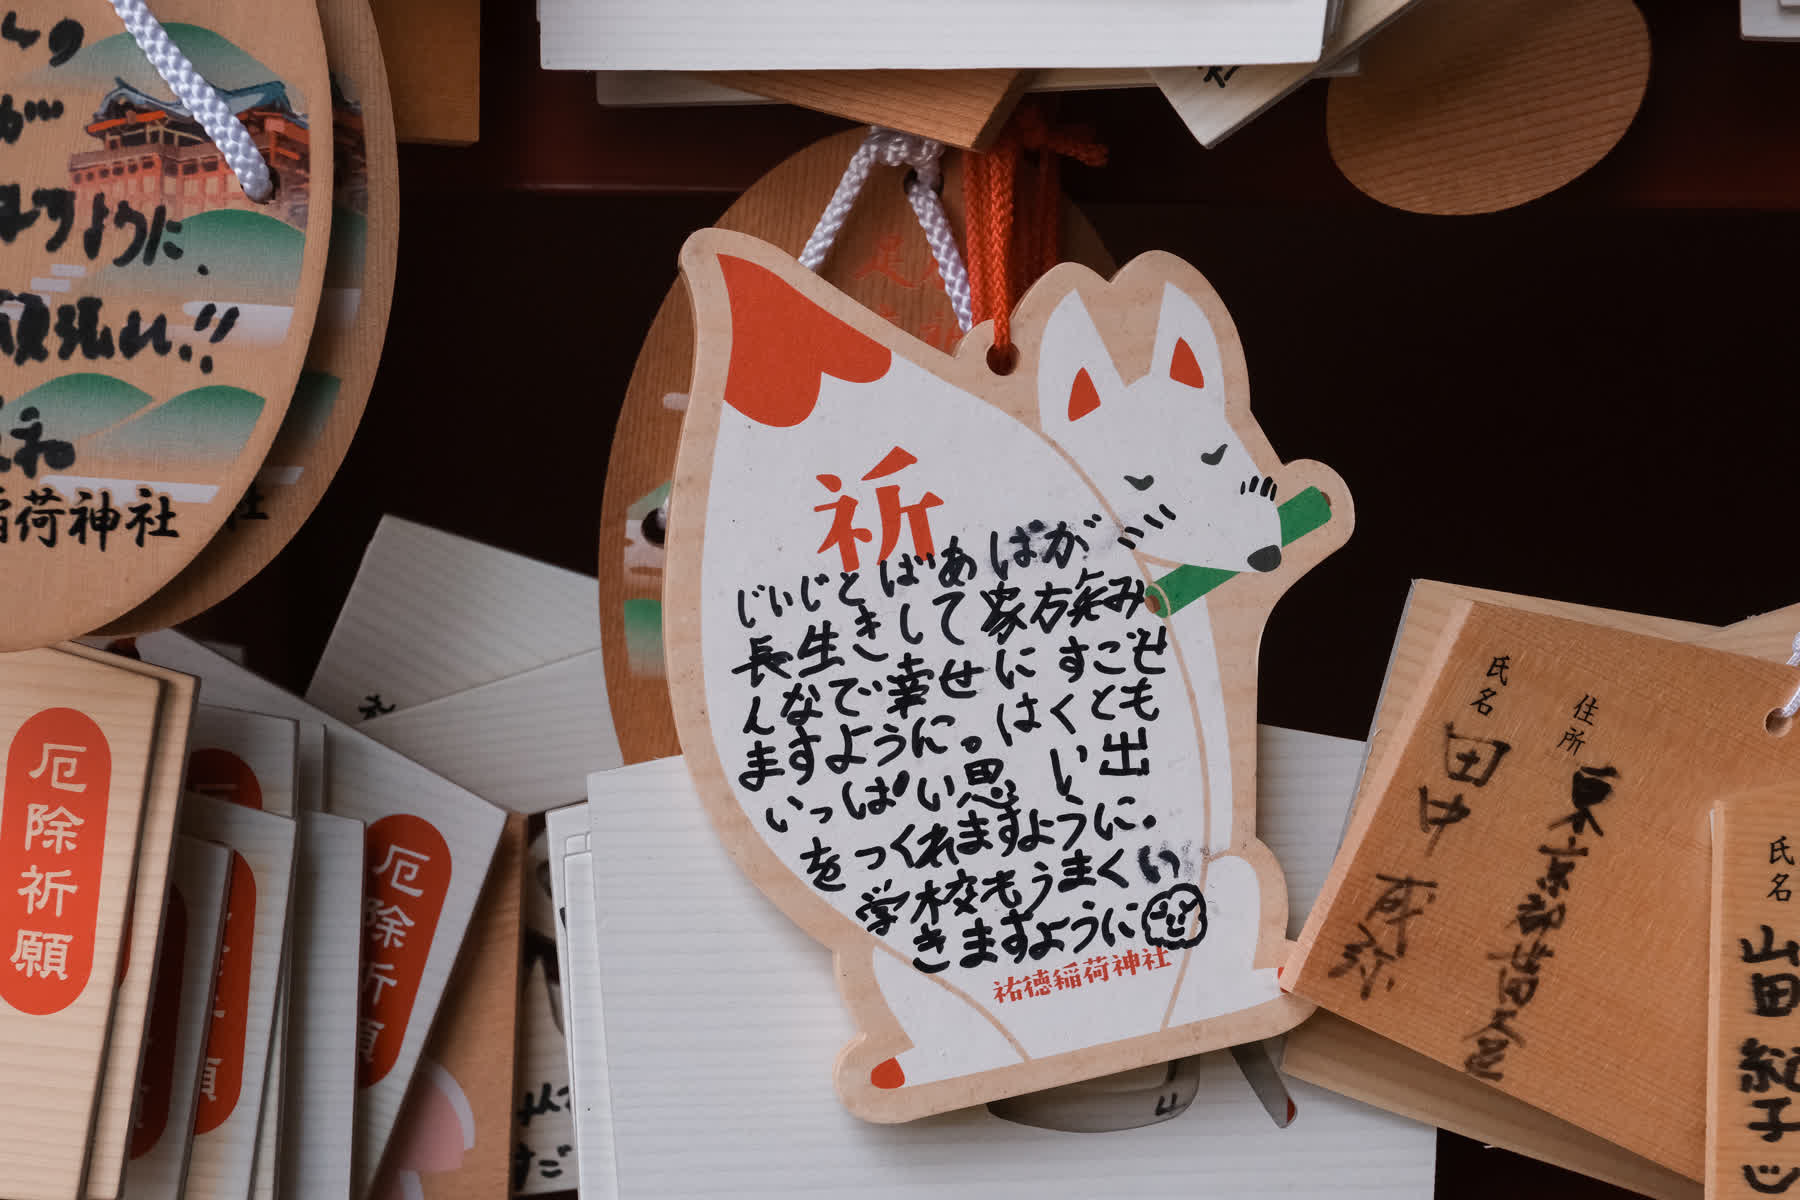 ように、
張れ!!
稲荷神社
厄除祈願
厄除祈願
祈
じいじとばあばが
長生きして家方笑み
んなで幸せにすごせ
ますように。はくとも
いっぱい思い出
をつくれますように。
学校もうまくい
きますように
祐徳稲荷神社
住所 東京都
氏名 田中
氏名 山田 紀子